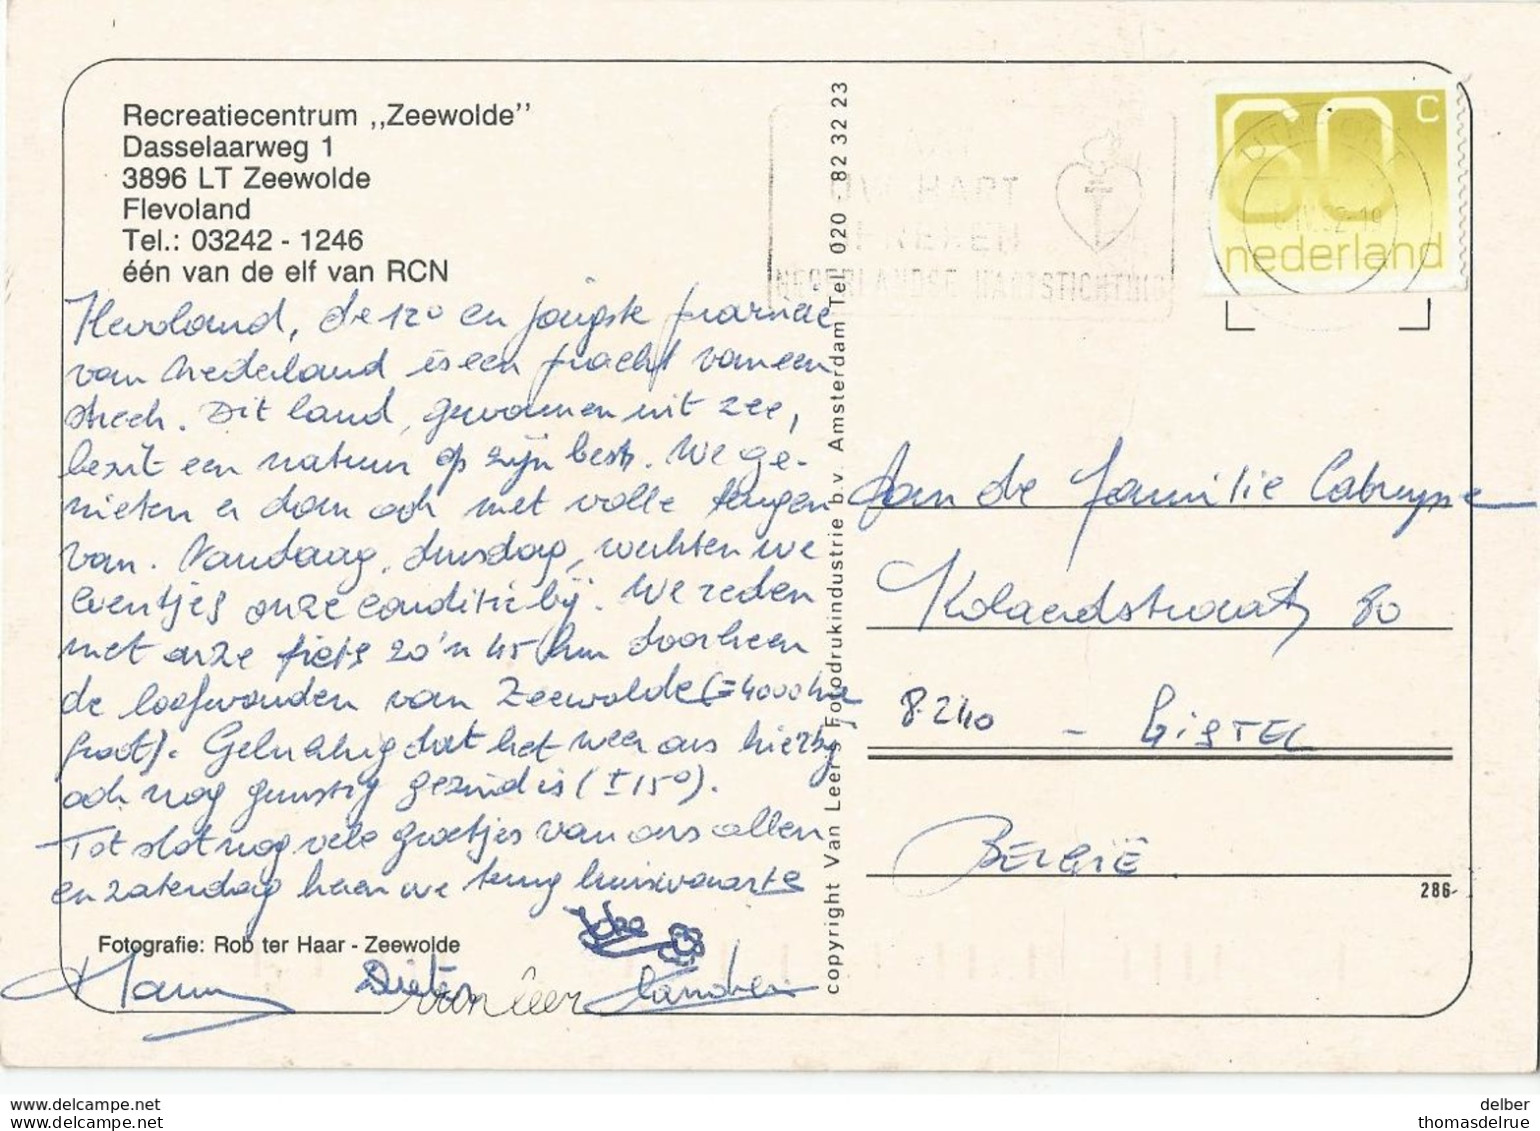 Recreatiecentrum ,,Zeewolde''
Dasselaarweg 1
3896 LT Zeewolde
Flevoland
Tel.: 03242 - 1246
één van de elf van RCN
Flevoland, de 12° en jongste provincie
van Nederland is een pracht van een
streek. Dit land, gewonnen uit zee,
bezit een natuur op zijn best. We ge-
nieten er dan ook met volle teugen
van. Vandaag, dinsdag, werkten we
eventjes onze conditie bij. We reden
met onze fiets zo'n 45 km doorheen
de loofwouden van Zeewolde (= 4000 ha
groot). Gelukkig dat het weer ons hierbij
ook nog gunstig gezind is (± 15°).
Tot slot nog vele groetjes van ons allen
en zaterdag keren we terug huiswaarts
Fotografie: Rob ter Haar - Zeewolde
Dieter
van Leer
copyright Van Leer's Fotodrukindustrie b.v. Amsterdam Tel. 020 - 82 32 23
HART
NEDERLANDSE HARTSTICHTING
60 c
nederland
Aan de familie Cabuype
Kolaardstraat 80
8240 - GISTEL
BELGIË
286
delber
thomasdelrue
www.delcampe.net